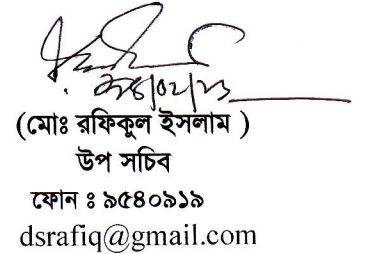 (মোঃ রফিকুল ইসলাম )
উপ সচিব
ফোন ঃ ৯৫৪০৯১৯
dsrafiq@gmail.com